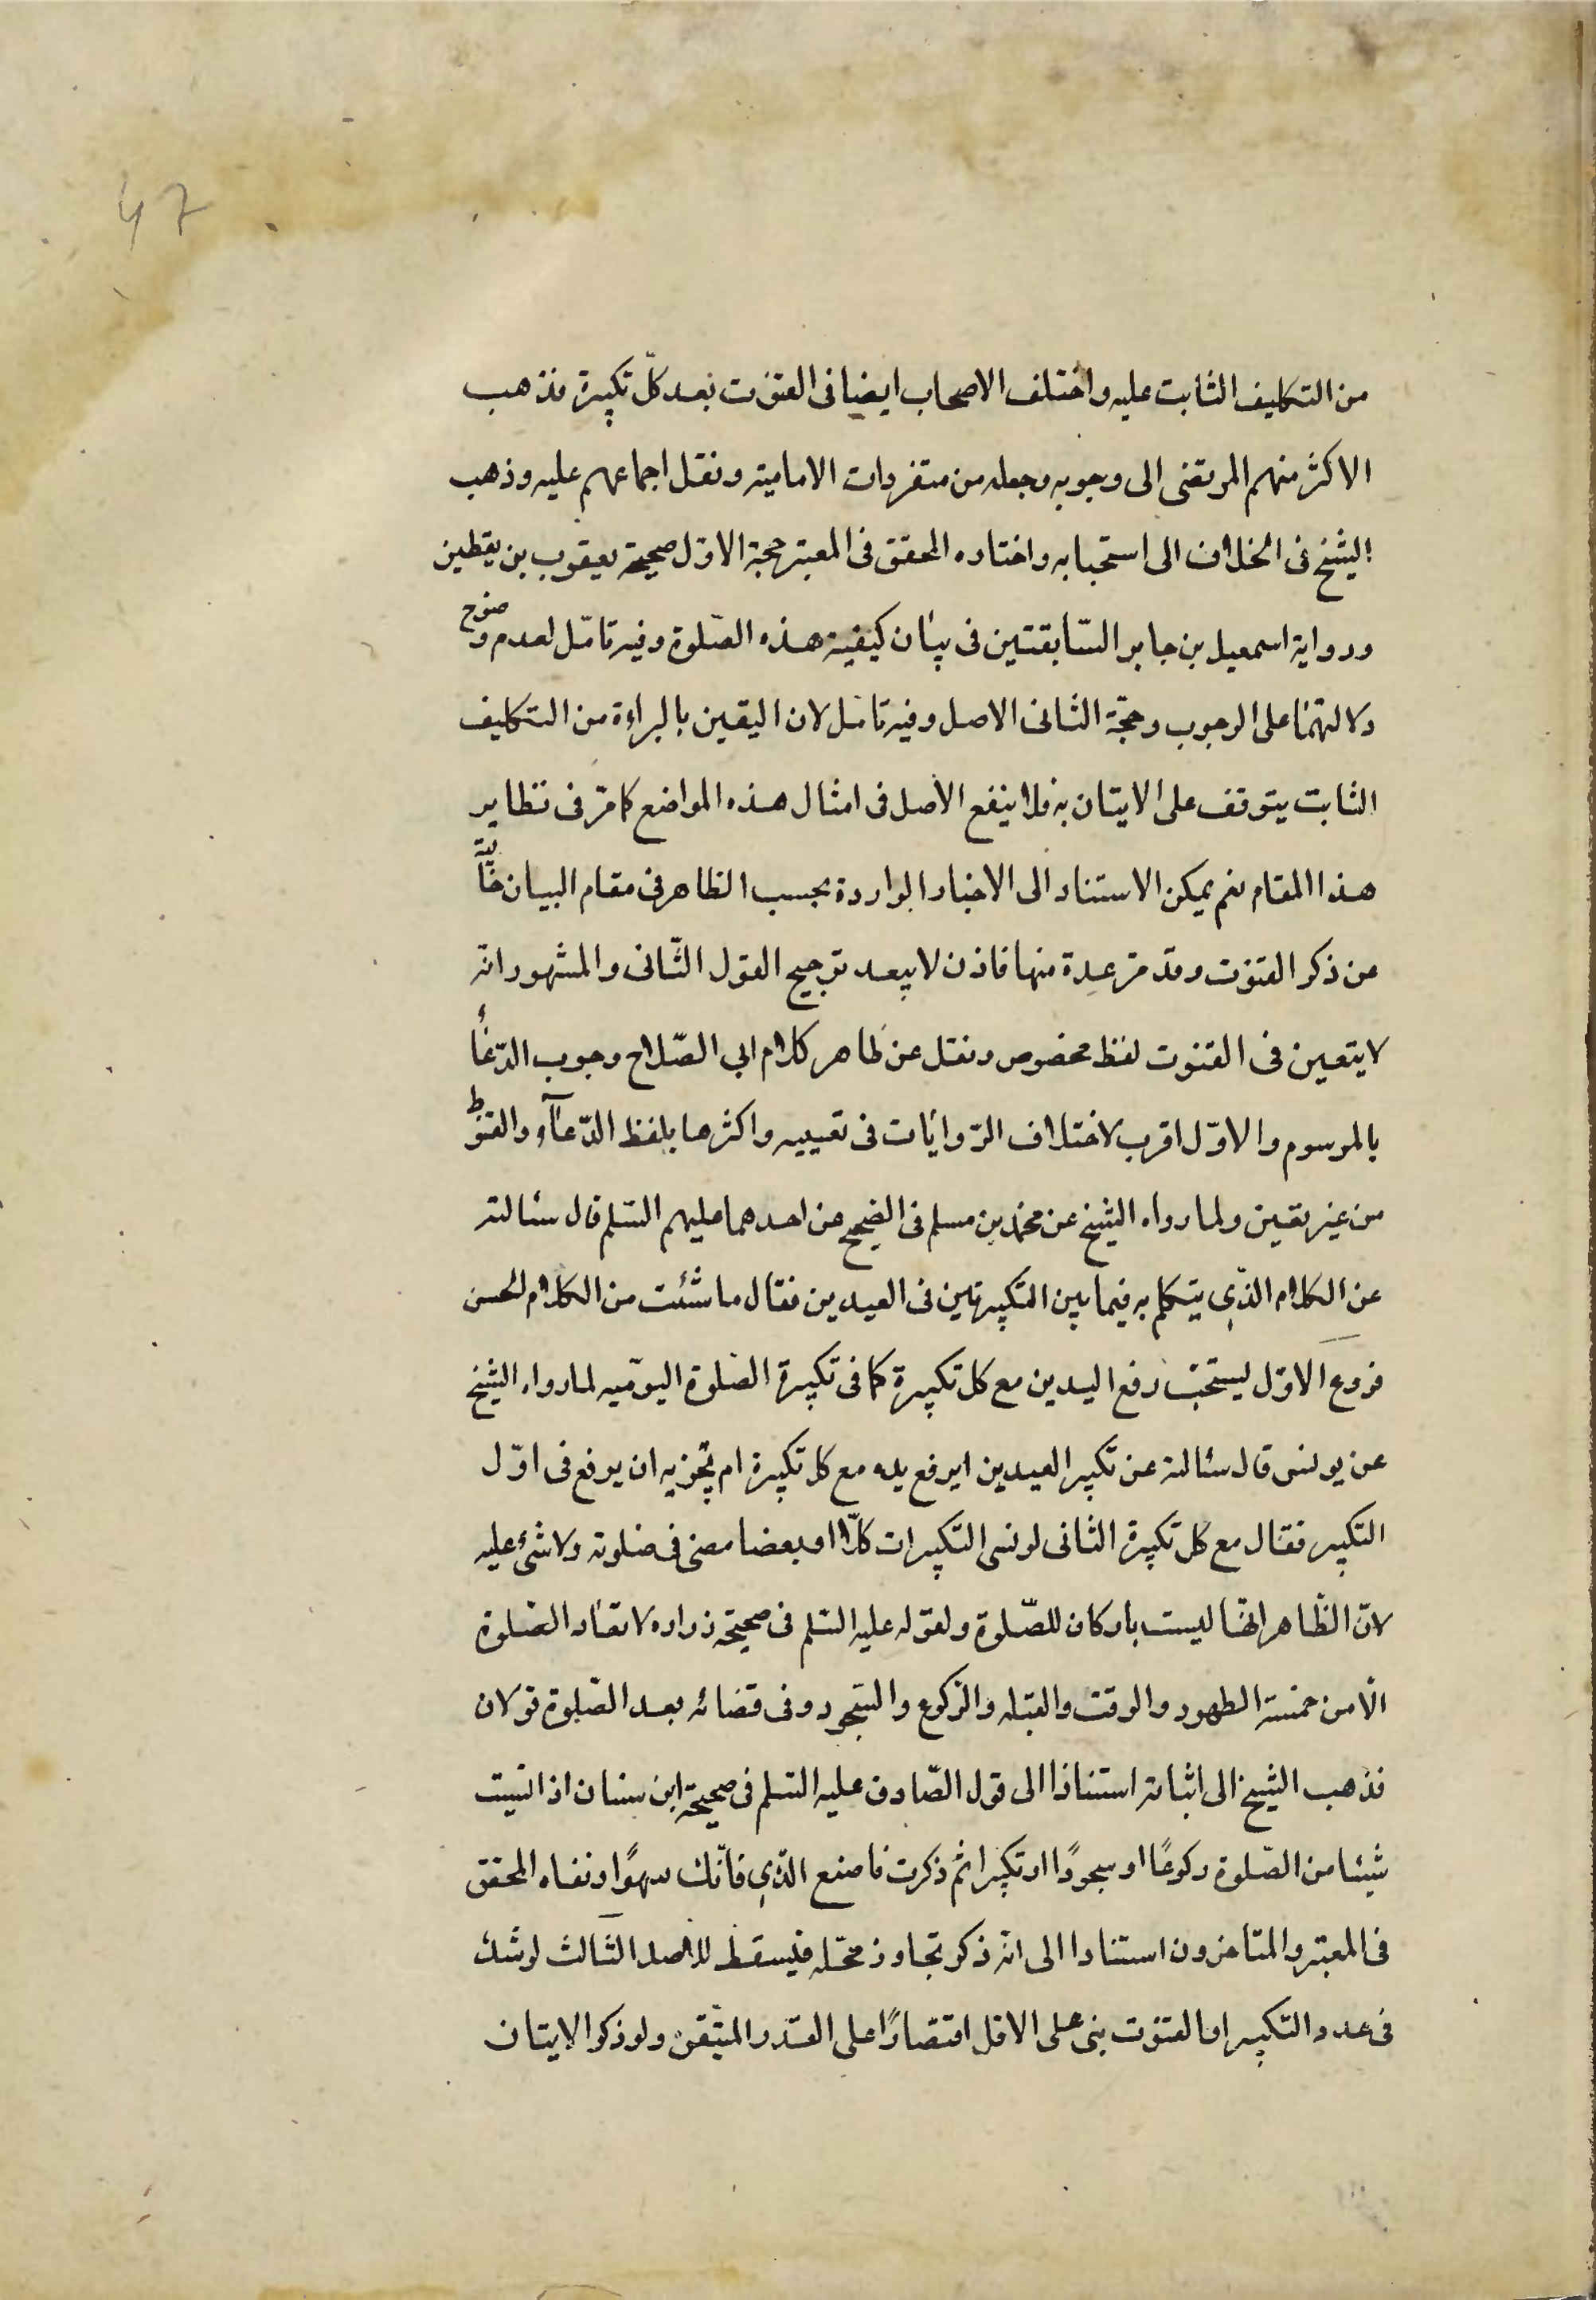 ۴۷
من التكليف الثابت عليه واختلف الاصحاب ايضا فى القنوت بعد كلّ تكبيرة فذهب
الاكثر منهم المرتضى الى وجوبه وجعله من متفردات الامامية ونقل اجماعهم عليه وذهب
الشيخ فى الخلاف الى استحبابه واختاره المحقق فى المعتبر حجة الاوّل صحيحة يعقوب بن يقطين
ورواية اسمعيل بن جابر السّابقتين فى بيان كيفية هذه الصّلوة وفيه تامّل لعدم وضوح
دلالتهما على الوجوب وحجّة الثانى الاصل وفيه تامّل لان اليقين بالبراءة من التكليف
الثابت يتوقف على الايتان به فلا ينفع الاصل فى امثال هذه المواضع كما مرّ فى نظاير
هذا المقام نعم يمكن الاستناد الى الاخبار الواردة بحسب الظاهر فى مقام البيان خالية
عن ذكر القنوت وقد مرّ عدة منها فاذن لا يبعد ترجيح القول الثّانى والمشهور انّه
لا يتعين فى القنوت لفظ مخصوص ونقل عن ظاهر كلام ابي الصّلاح وجوب الدّعاء
بالمرسوم والاوّل اقرب لاختلاف الرّوايات فى تعيينه واكثرها بلفظ الدّعآء والقنوط
من غير تعيين ولما رواه الشيخ عن محمّد بن مسلم فى الصّحيح عن احدهما عليهم السّلم قال سئالته
عن الكلام الذّي يتكلم به فيما بين التكبيرتين فى العيدين فقال ما شئت من الكلام الحسن
فروع الاوّل يستحبّ رفع اليدين مع كل تكبيرة كما فى تكبيرة الصّلوة اليوميّه لما رواه الشيخ
عن يونس قال سئالته عن تكبير العيدين ايرفع يده مع كل تكبيرة ام يجزيه ان يرفع فى اوّل
التكبير فقال مع كل تكبيرة الثانى لو نسى التكبيرات كلّا او بعضا مضى فى صلوته ولا شئ عليه
لانّ الظّاهر انّها ليست باركان للصّلوة ولقوله عليه السّلم فى صحيحة زراره لا تعاد الصّلوة
الّا من خمسة الطهور والوقت والقبله والرّكوع والسّجود وفى قضائه بعد الصّلوة قولان
فذهب الشيخ الى اثباته استنادا الى قول الصّادق عليه السّلم فى صحيحة ابن سنان اذا نسيت
شيئا من الصّلوة ركوعًا او سجودًا او تكبيرا ثم ذكرت فاصنع الذّي فاتك سهوًا ونفاه المحقق
فى المعتبر والمتاخرون استنادا الى انّه ذكر تجاوز محلّه فيسقط للاصل الثالث لو شك
فى عدد التكبير او القنوت بنى على الاقل اقتصارًا على القدر المتيقن ولو ذكر الايتان